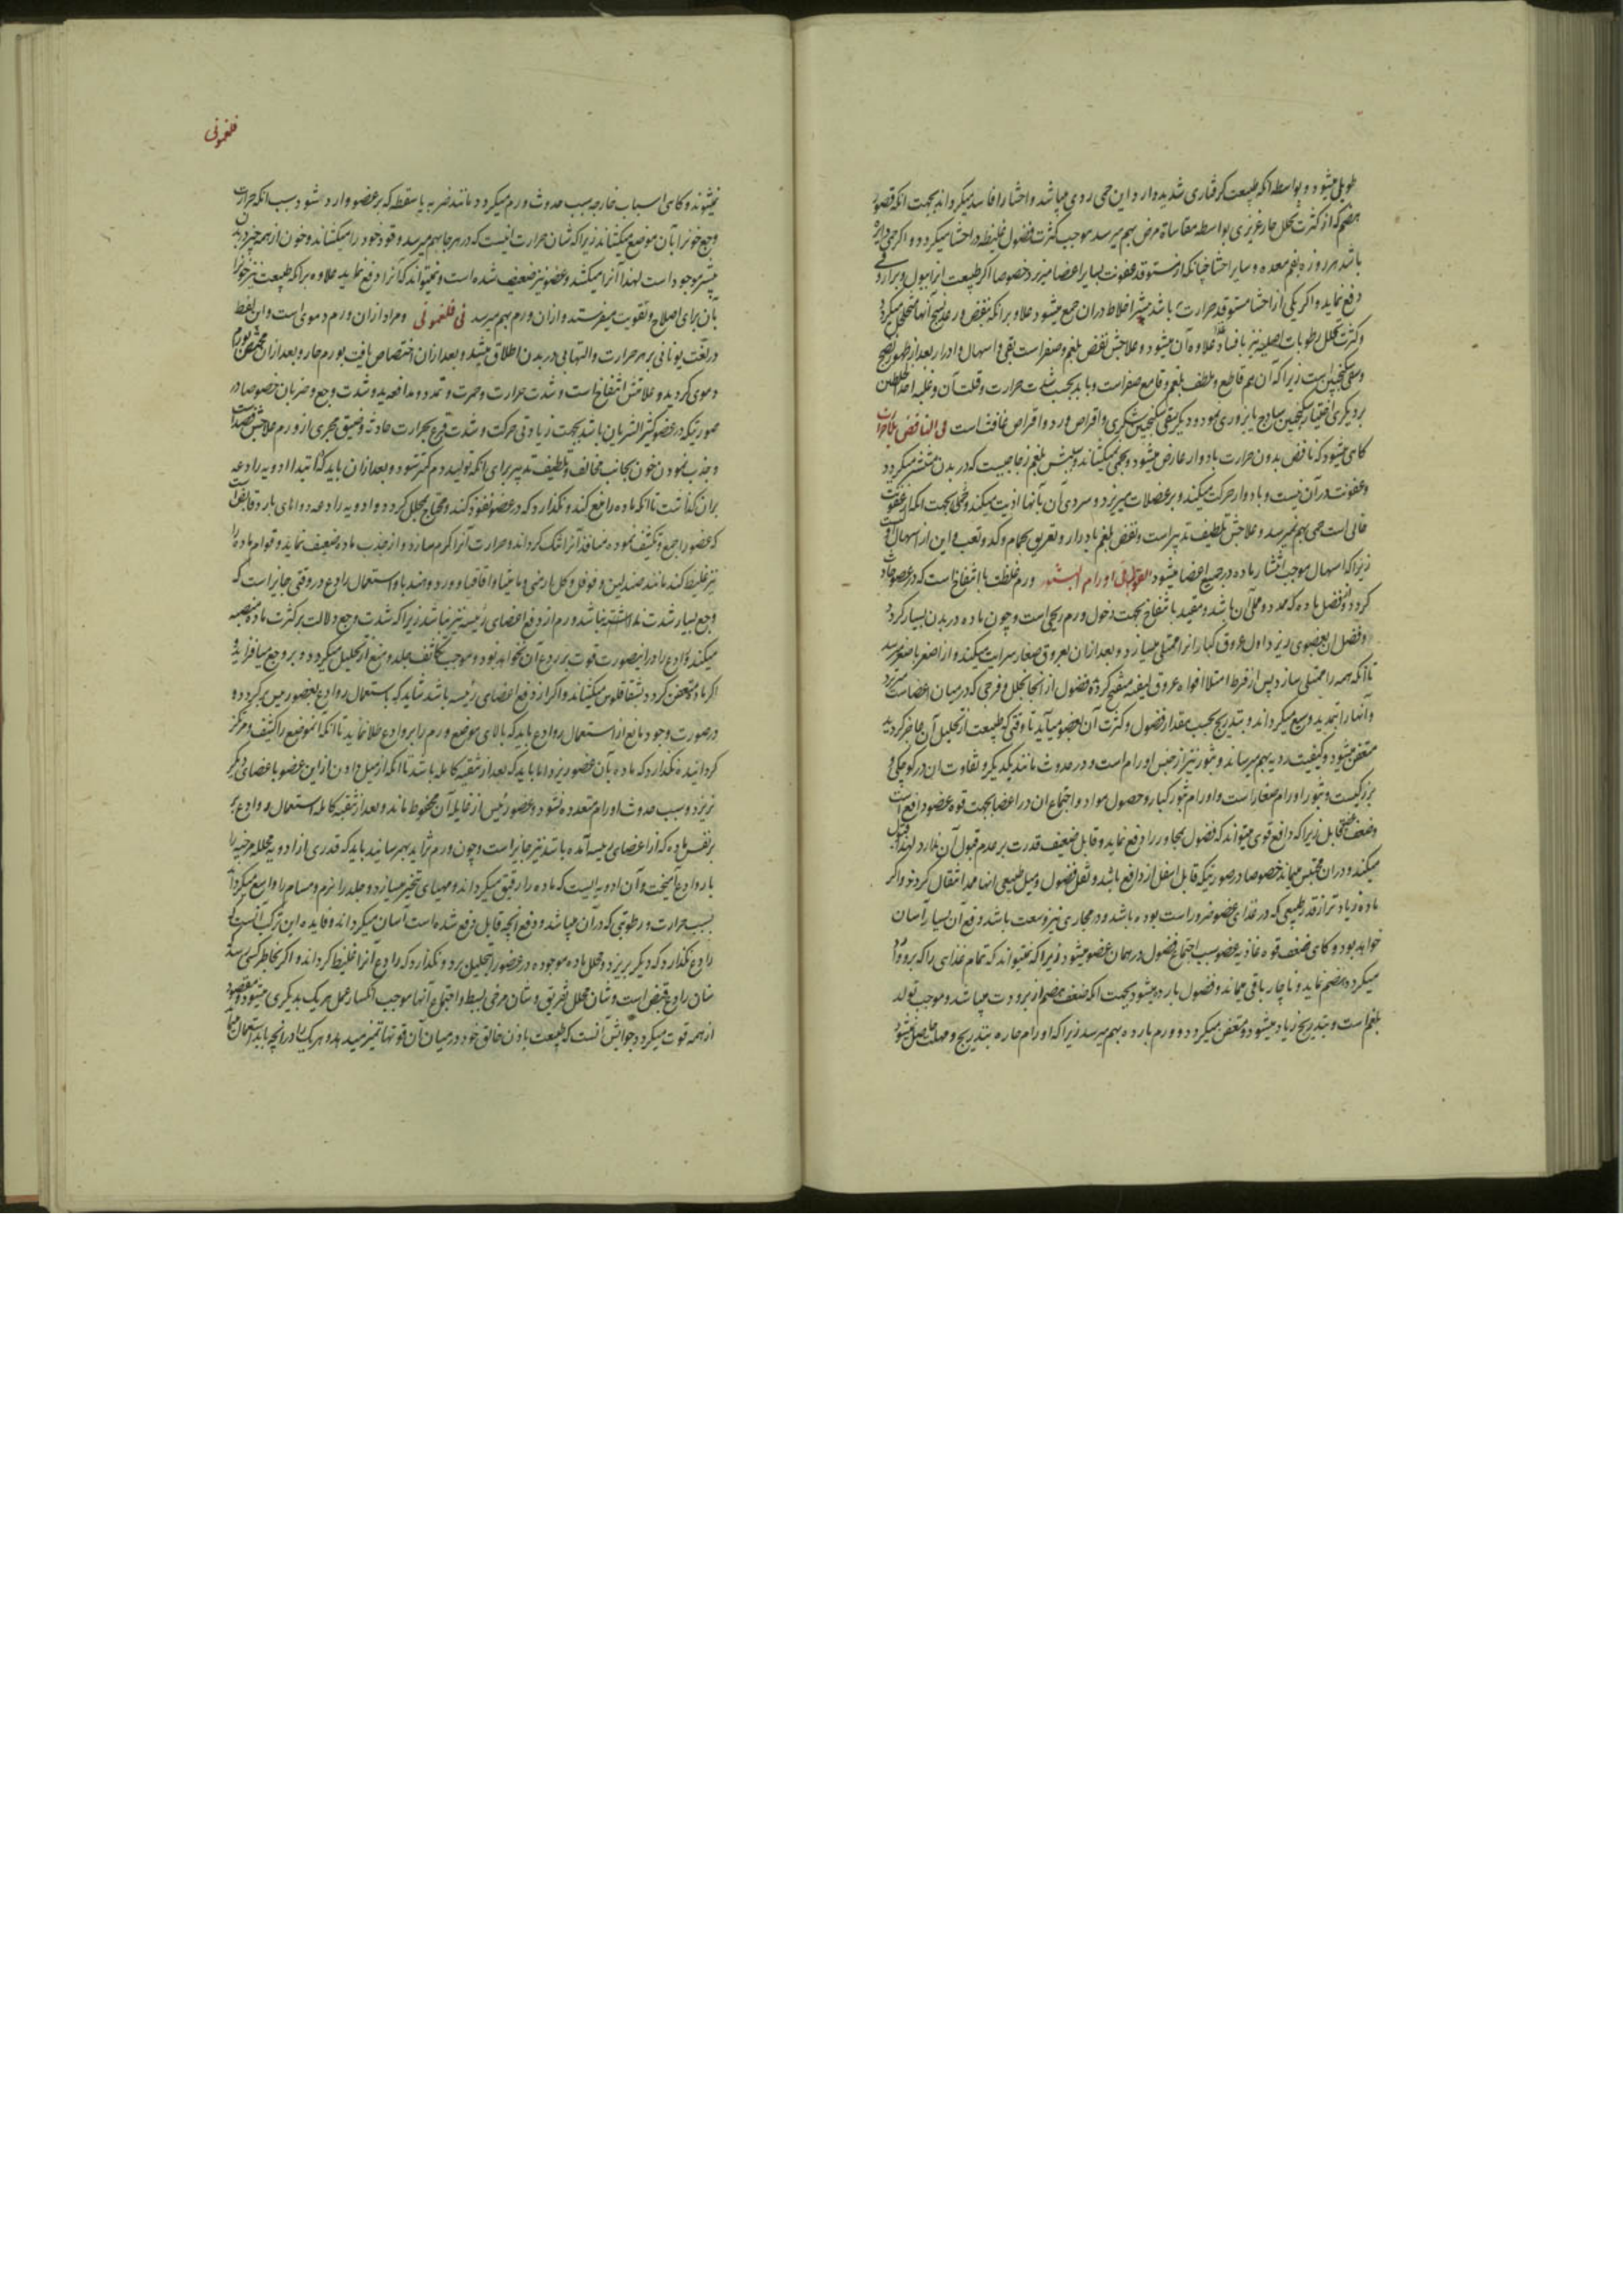 طویل میشود و بواسطه آنکه طبیعت گرفتاری شدید دارد این حمی ردی میباشد و احشا را فاسد میگرداند بجهت آنکه قصور
هضم که از کثرت تحلل حار غریزی بواسطه مقاساة مرض بهم میرسد موجب کثرت فضول غلیظه در احشا میگردد و اگر حمی دایره
باشد هر روزه بلغم معده و سایر احشا چنانکه از مستوقد عفونت بسایر اعضا میریزد خصوصا اگر طبیعت آنرا ببول و براز
دفع نماید و اگر یکی از احشا مستوقد حرارت باشد بیشتر اخلاط در آن جمع میشود علاوه بر آنکه نسج آنها متخلخل میگردد
و کثرت تحلل رطوبات اصلیه نیز علاوه آن میشود و علاجش نفض بلغم و صفراست بقی و اسهال و ادرار بعد از ظهور نضج
و سقی سکنجبین است زیرا که آن هم قاطع و ملطف بلغم و قامع صفراست و باید بحسب شدت حرارت و قلت آن و غلبه احد الخلطین
بر دیگری اختیار سکنجبین ساذج یا بزوری نمود و دیگر سقی سکنجبین شکری و اقراص ورد و اقراص غافث است فی النافض بلا حرارت
گاهی میشود که نافض بدون حرارت بادوار عارض میشود و بحمی نمیکشاند و سببش بلغم زجاجیست که در بدن منتشر میگردد
و عفونت در آن نیست و بادوار حرکت میکند و بر عضلات میریزد و سردی آن بآنها اذیت میکند و بجهت آنکه از عفونت
خالی است حمی بهم نمیرسد و علاجش تلطیف تدبیر است و نفض بلغم بادرار و تعریق بحمام و کد و تعب و این از اسهال
زیرا که اسهال موجب انتشار ماده در جمیع اعضا میشود القول فی اورام البثور ورم غلظت با انتفاخ است که در عضو حادث
گردد و فضل ماده که ممدد و مملی آن باشد و مقید بانتفاخ بجهت دخول ورم ریحی است و چون ماده در بدن بسیار گردد
و فضل آن بعضوی ریزد اول عروق کبار آنرا ممتلی میسازد و بعد از آن بعروق صغار سرایت میکند و از اصغر باصغر میرسد
تا آنکه همه را ممتلی سازد پس از فرط امتلا افواه عروق لیفیه منفتح گردد و فضول از آنجا بخلل و فرجی که در میان اعضاست میریزد
و آنها را تمدید و وسیع میگرداند و بتدریج بحسب مقدار فضول و کثرت آن بعضو میآید تا وقتی که طبیعت از تحلیل آن عاجز گردیده
متعفن میشود و کیفیت ردیه بهم میرساند و بثور نیز از جنس اورام است و در حدوث مانند یکدیگر و تفاوت آن در کوچکی و
بزرگیست و بثور اورام صغار است و اورام بثور کبار و حصول مواد و اجتماع آن در اعضا بجهت قوه عضو دافع است
و ضعف عضو قابل زیرا که دافع قوی میتواند که فضول بمجاور را دفع نماید و قابل ضعیف قدرت بر عدم قبول آن ندارد لهذا قبول
میکند و در آن محتبس میماند خصوصا در صورتیکه قابل اسفل از دافع باشد و ثقل فضول و میل طبیعی آنها ممد انتقال گردد و اگر
ماده زیادتر از قدر طبیعی که در غذای عضو ضرور است بوده باشد و در مجاری نیز وسعت باشد دفع آن بسیار آسان
خواهد بود و گاهی ضعف قوه غاذیه عضو سبب اجتماع فضول در همان عضو میشود زیرا که نمیتواند که تمام غذای را که برو وارد
میگردد هضم نماید و ناچار باقی میماند و فضول بارده میشود بجهت آنکه ضعف هضم از برودت میباشد و موجب تولد
بلغم است و بتدریج زیاد میشود و متعفن میگردد و ورم بارده بهم میرسد زیرا که اورام حاره بتدریج و مهلت حاصل نمیشود
فلغمونی
نمیشوند و گاهی اسباب خارجه سبب حدوث ورم میگردد مانند ضربه یا سقطه که بر عضو وارد شود بسبب آنکه حرارت
وجع خونرا بآن موضع میکشاند زیرا که شأن حرارت اینست که در هر جا بهم میرسد وقود خود را میکشاند و خون از همه چیز در بدن
بیشتر موجود است لهذا آنرا میکشد و عضو نیز ضعیف شده است و نمیتواند که آنرا دفع نماید علاوه بر آنکه طبیعت نیز خونرا
بآن برای اصلاح و تقویت میفرستد و از آن ورم بهم میرسد فی فلغمونی و مراد از آن ورم دمویست و این لفظ
در لغت یونانی بر هر حرارت و التهابی در بدن اطلاق میشد و بعد از آن اختصاص یافت بورم حار و بعد از آن مخصوص بورم
دموی گردید و علامتش انتفاخ است و شدت حرارت و حمرت و تمدد و مدافعه ید و شدت وجع و ضربان خصوصا در
صورتیکه در عضو کثیر الشریان باشد بجهت زیادتی حرکت و شدت قرع بحرارت حادثه و ضیق مجری از ورم علاجش فصد است
و جذب نمودن خون بجانب مخالف و تلطیف تدبیر برای آنکه تولید دم کمتر شود و بعد از آن باید که ابتدا ادویه رادعه
بر آن گذاشت تا آنکه ماده را دفع کند و نگذارد که در عضو نفوذ کند و محتاج بمحلل گردد و ادویه رادعه دواهای بارد قابض است
که عضو را جمع و تکثیف نموده منافذ آنرا تنگ گرداند و حرارت آنرا کم سازد و از جذب ماده ضعیف نماید و قوام ماده را
نیز غلیظ کند مانند صندلین و فوفل و گل ارمنی و مامیثا و اقاقیا و ورد و هندبا و استعمال رادع در وقتی جایز است که
وجع بسیار شدت نداشته باشد و ورم از دفع اعضای رئیسه نیز نباشد زیرا که شدت وجع دلالت بر کثرت ماده منصبه
میکند و رادع را در اینصورت قوت بر ردع آن نخواهد بود و موجب تکاثف جلد و منع از تحلیل میگردد و بر وجع میافزاید و
اگر ماده متعفن گردد بشقاقلوس میکشاند و اگر از دفع اعضای رئیسه باشد شاید که باستعمال روادع بعضو رئیس برگردد و
در صورت وجود مانع از استعمال روادع باید که بالای موضع ورم را بروادع طلا نماید تا آنکه آنموضع را کثیف و متمرکز
گردانیده نگذارد که ماده بآن عضو ریزد اما باید که بعد از تنقیه کامله باشد تا آنکه از میل دادن از این عضو باعضای دیگر
نریزد و سبب حدوث اورام متعدده نشود و عضو رئیس از غایله آن محفوظ ماند و بعد از تنقیه کامله استعمال روادع بر
بر نفس ماده که از اعضای رئیسه آمده باشد نیز جایز است و چون ورم تزاید بهم رساند باید که قدری از ادویه محلله مرخیه را
با روادع آمیخت و آن ادویه ایست که ماده را رقیق میگرداند و مهیای تبخیر میسازد و جلد را نرم و مسام را واسع میگرداند
بسبب حرارت و رطوبتی که در آن میباشد و دفع آنچه قابل دفع شده است آسان میگرداند و فایده این ترکیب آنست که
رادع نگذارد که دیگر بریزد و محلل ماده موجوده در عضو را بتحلیل برد و نگذارد که رادع آنرا غلیظ گرداند و اگر بخاطر کسی رسد
شأن رادع قبض است و شأن محلل تفریق و شأن مرخی بسط و اجتماع آنها موجب انکسار عمل هر یک بدیگری میشود و مقصود
از همه فوت میگردد جوابش آنست که طبیعت باذن خالق خود در میان آن قوتها تمیز میدهد و هر یک را در آنچه باید استعمال میکند